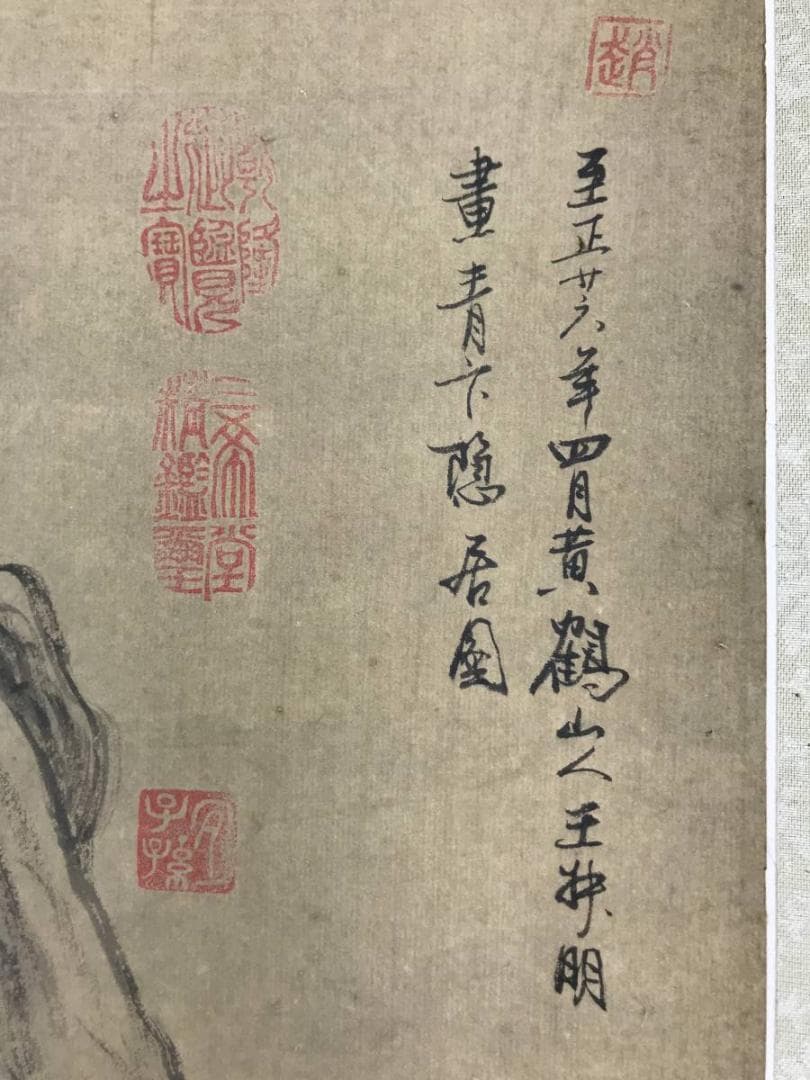 趙
至正廿六年四月黃鶴山人王叔明
畫青卞隱居圖
乾隆御覽之寶
三希堂精鑑璽
宜子孫